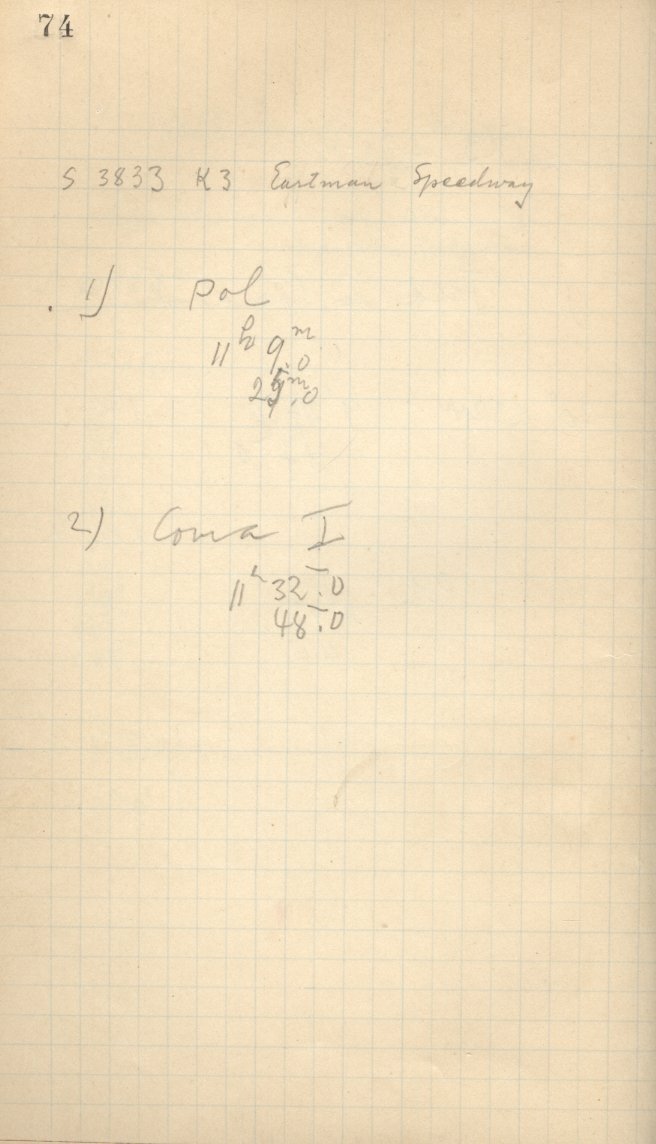 74
S 3833 K3 Eastman Speedway
1) Pol
11h 9m.0
25m.0
2) Coma I
11h 32m.0
48m.0